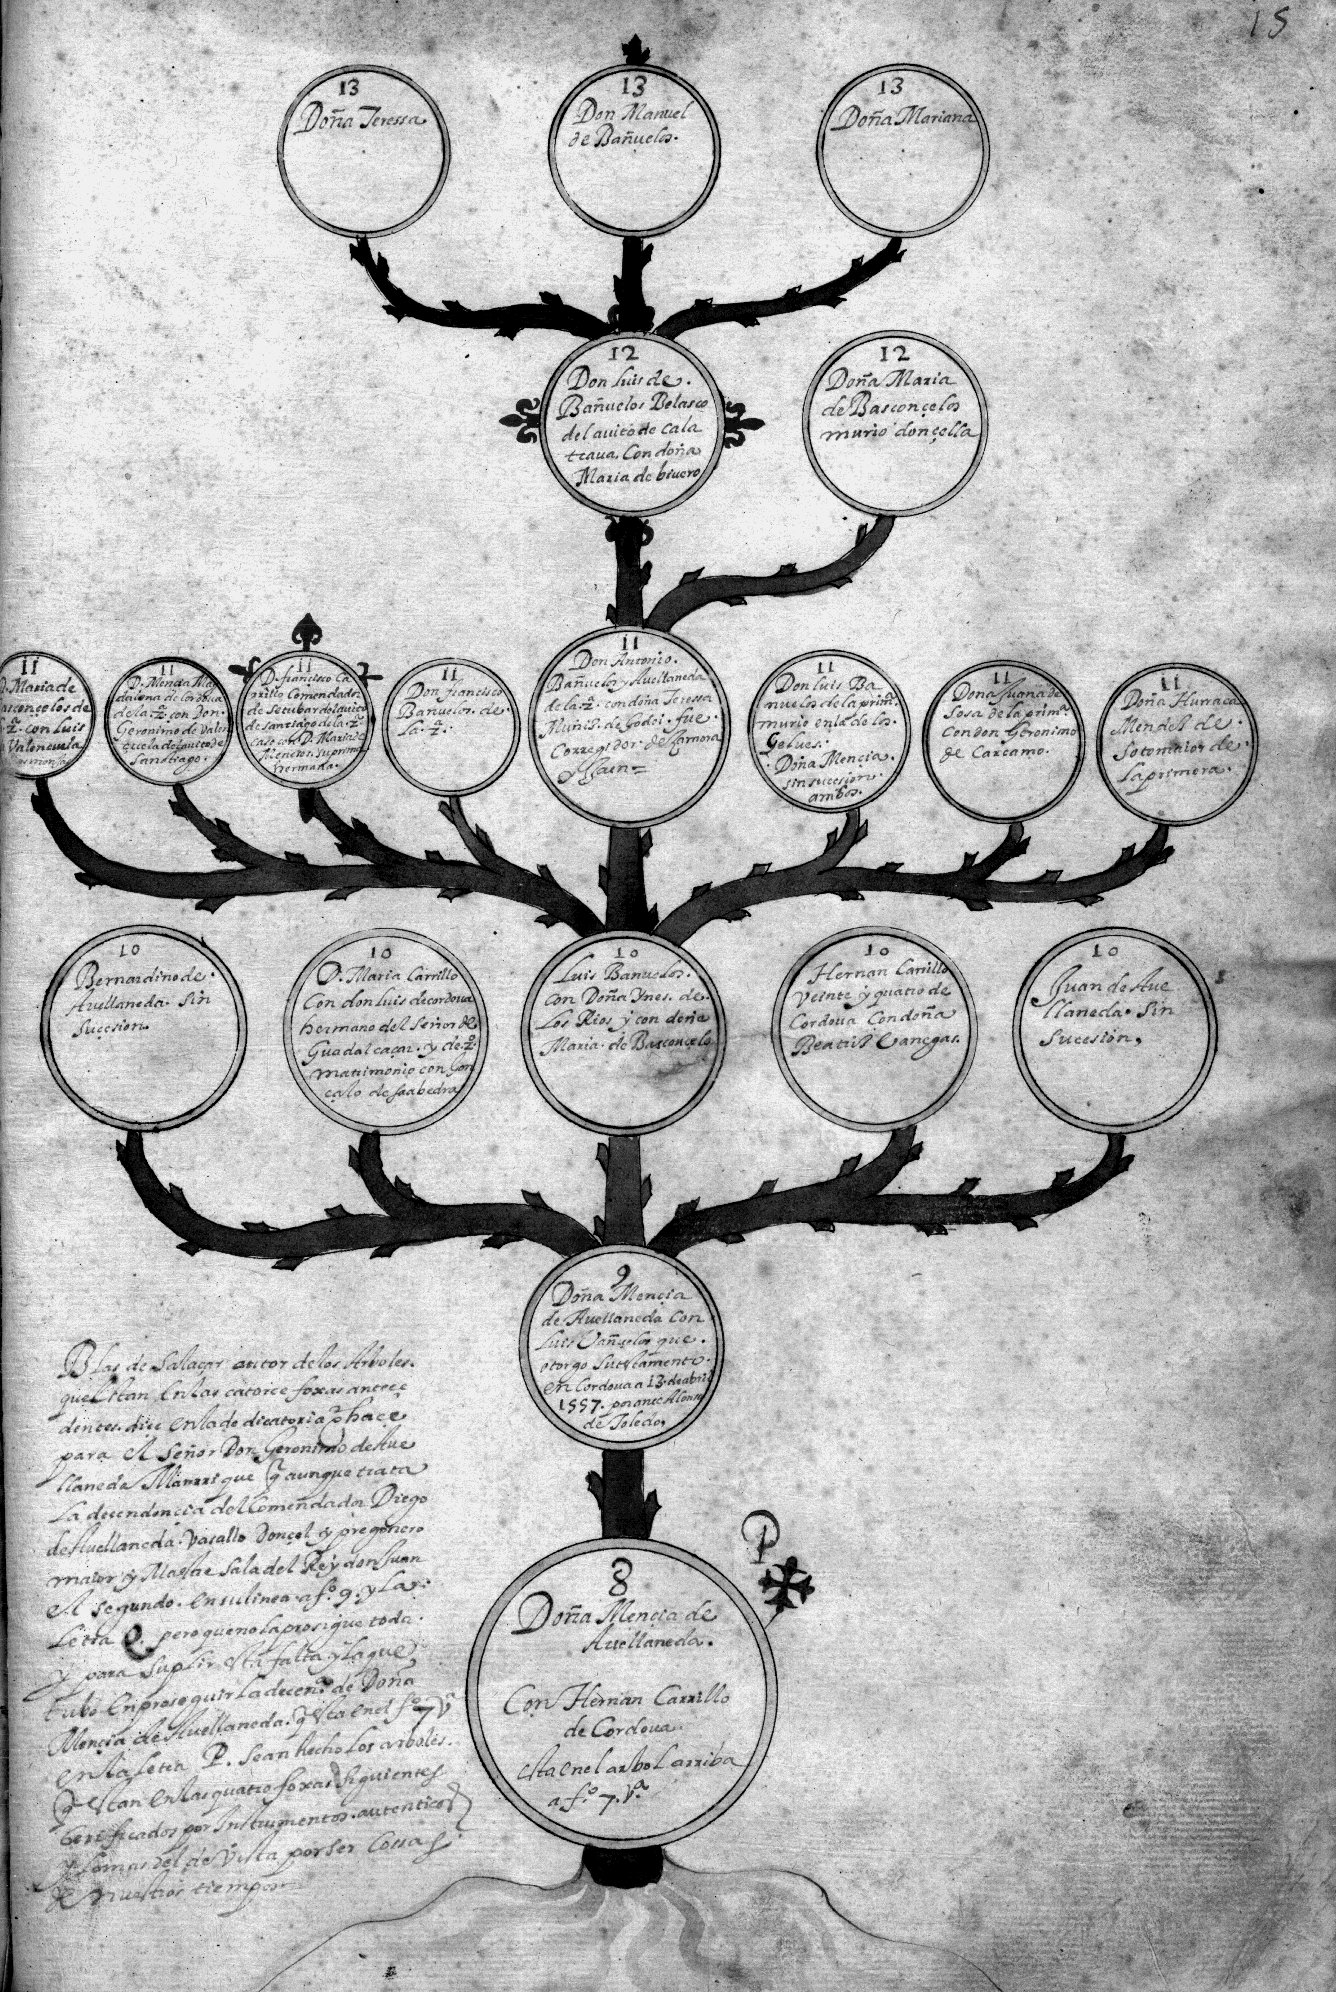 15
13
Doña Teressa
13
Don Manuel
de Bañuelos.
13
Doña Mariana
12
Don Luis de.
Bañuelos Belasco
del auito de Cala
traua. Con doña
Maria de biuero
12
Doña Maria
de Basconçelos
murio donçella
11
D. Maria de
asconçelos de
con Luis
Valençuela
11
D. Mencia Ma
dalena de Cordoua
de la 2ª. con Don.
Geronimo de Valen
çuela del auito de
Sanctiago.
11
D. francisco Ca
rrillo Comendador
de Setubar del auito
de Santiago de la 2ª.
casò con D. Maria de
su prima
hermana.
11
Don francisco
Bañuelos. de.
La. 2ª.
11
Don Antonio.
Bañuelos y Auellaneda
de la 2ª. con doña Teressa
Muñiz. de Godoi. fue.
Corregidor. de Zamora
y Jaen
11
Don Luis Ba
nuelos de la primª.
murio en la de los.
Gelues.
Doña Mençia
sin sucesion.
ambos.
11
Dona Juana de
Sosa de la primª.
Con don Geronimo
de Carcamo.
11
Doña Hurraca
Mendez de.
Sotomaior de.
La primera.
10
Bernardino de.
Auellaneda. Sin
Suçesion.
10
D. Maria Carrillo
Con don Luis de cordoua
hermano del Señor de
Guadalcaçar. y de 2º.
matrimonio con Gon
çalo de Saabedra
10
Luis Banuelos.
Con Doña Ynes. de.
Los Rios y con doña
Maria. de Basconçelo
10
Hernan Carrillo
Veinte y quatro de
Cordoua Con doña
Beatriz Vanegas.
10
Juan de Aue
llaneda. Sin
Sucesion,
9
Doña Mençia
de Auellaneda Con
Luis Vañuelos que.
otorgo su testamento.
en Cordoua a 13. de abril
1557. por ante Alonso
de Toledo,
P
8
Doña Mençia de
Auellaneda.
Con Hernan Carrillo
de Cordoua.
esta en el arbol arriba
a fº. 7. Vª.
Blas de Salaçar autor de los Arboles.
que estan en las catorce foxas antece
dentes. dice en la dedicatoria q̃ haçe
para el Señor Don Geronimo de Aue
llaneda Manrrique q̃ aunque trata
La decendençia del Comendador Diego
de Auellaneda. Vasallo Donçel y pregonero
maior y Mastre Sala del Rey don Juan
el segundo. en su linea. a fº. 9. y La.
Letra pero que no la prosigue toda.
y para Suplir esta falta y la que
tubo en proseguir La decenª. de Doña
Mençia de Auellaneda. q̃ esta en el fº. 7 Vª
en la Letra P. Se an hecho Los arboles.
q̃ estan en las quatro foxas siguientes
Certificados por Instrumentos. autenticos
y de Vista por Ser Cossas
de nuestros tiempos